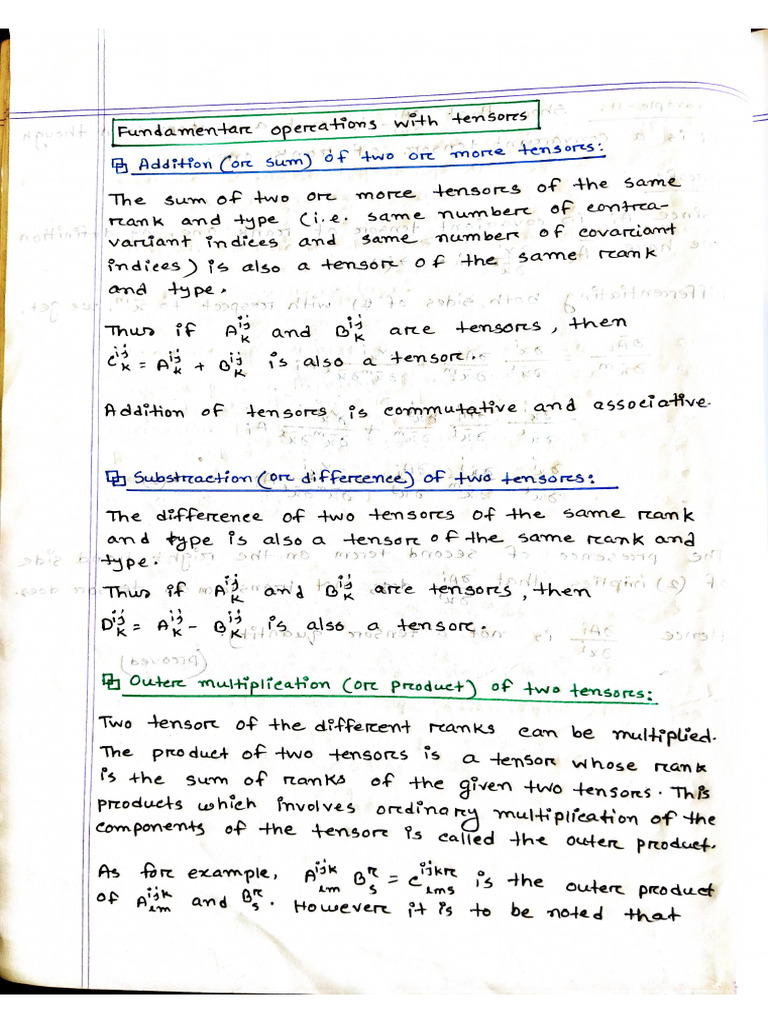 Fundamental operations with tensors
Addition (or sum) of two or more tensors:
The sum of two or more tensors of the same
rank and type (i.e. same number of contra-
variant indices and same number of covariant
indices) is also a tensor of the same rank
and type.
Thus if A^{ij}_k and B^{ij}_k are tensors, then
C^{ij}_k = A^{ij}_k + B^{ij}_k is also a tensor.
Addition of tensors is commutative and associative.
Substraction (or difference) of two tensors:
The difference of two tensors of the same rank
and type is also a tensor of the same rank and
type.
Thus if A^{ij}_k and B^{ij}_k are tensors, then
D^{ij}_k = A^{ij}_k - B^{ij}_k is also a tensor.
Outer multiplication (or product) of two tensors:
Two tensor of the different ranks can be multiplied.
The product of two tensors is a tensor whose rank
is the sum of ranks of the given two tensors. This
products which involves ordinary multiplication of the
components of the tensor is called the outer product.
As for example, A^{ijk}_{lm} B^r_s = C^{ijkr}_{lms} is the outer product
of A^{ijk}_{lm} and B^r_s. However it is to be noted that